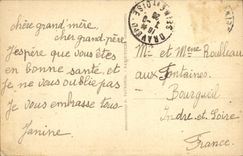 chère grand'mère
cher grand-père
J'espère que vous êtes
en bonne santé, et
je ne vous oublie pas
Je vous embrasse tous
Janine
Mr et Mme Roulleau
aux Fontaines.
Bourgueil
Indre et Loire
France.
DRAVEIL
SEINE-ET-OISE